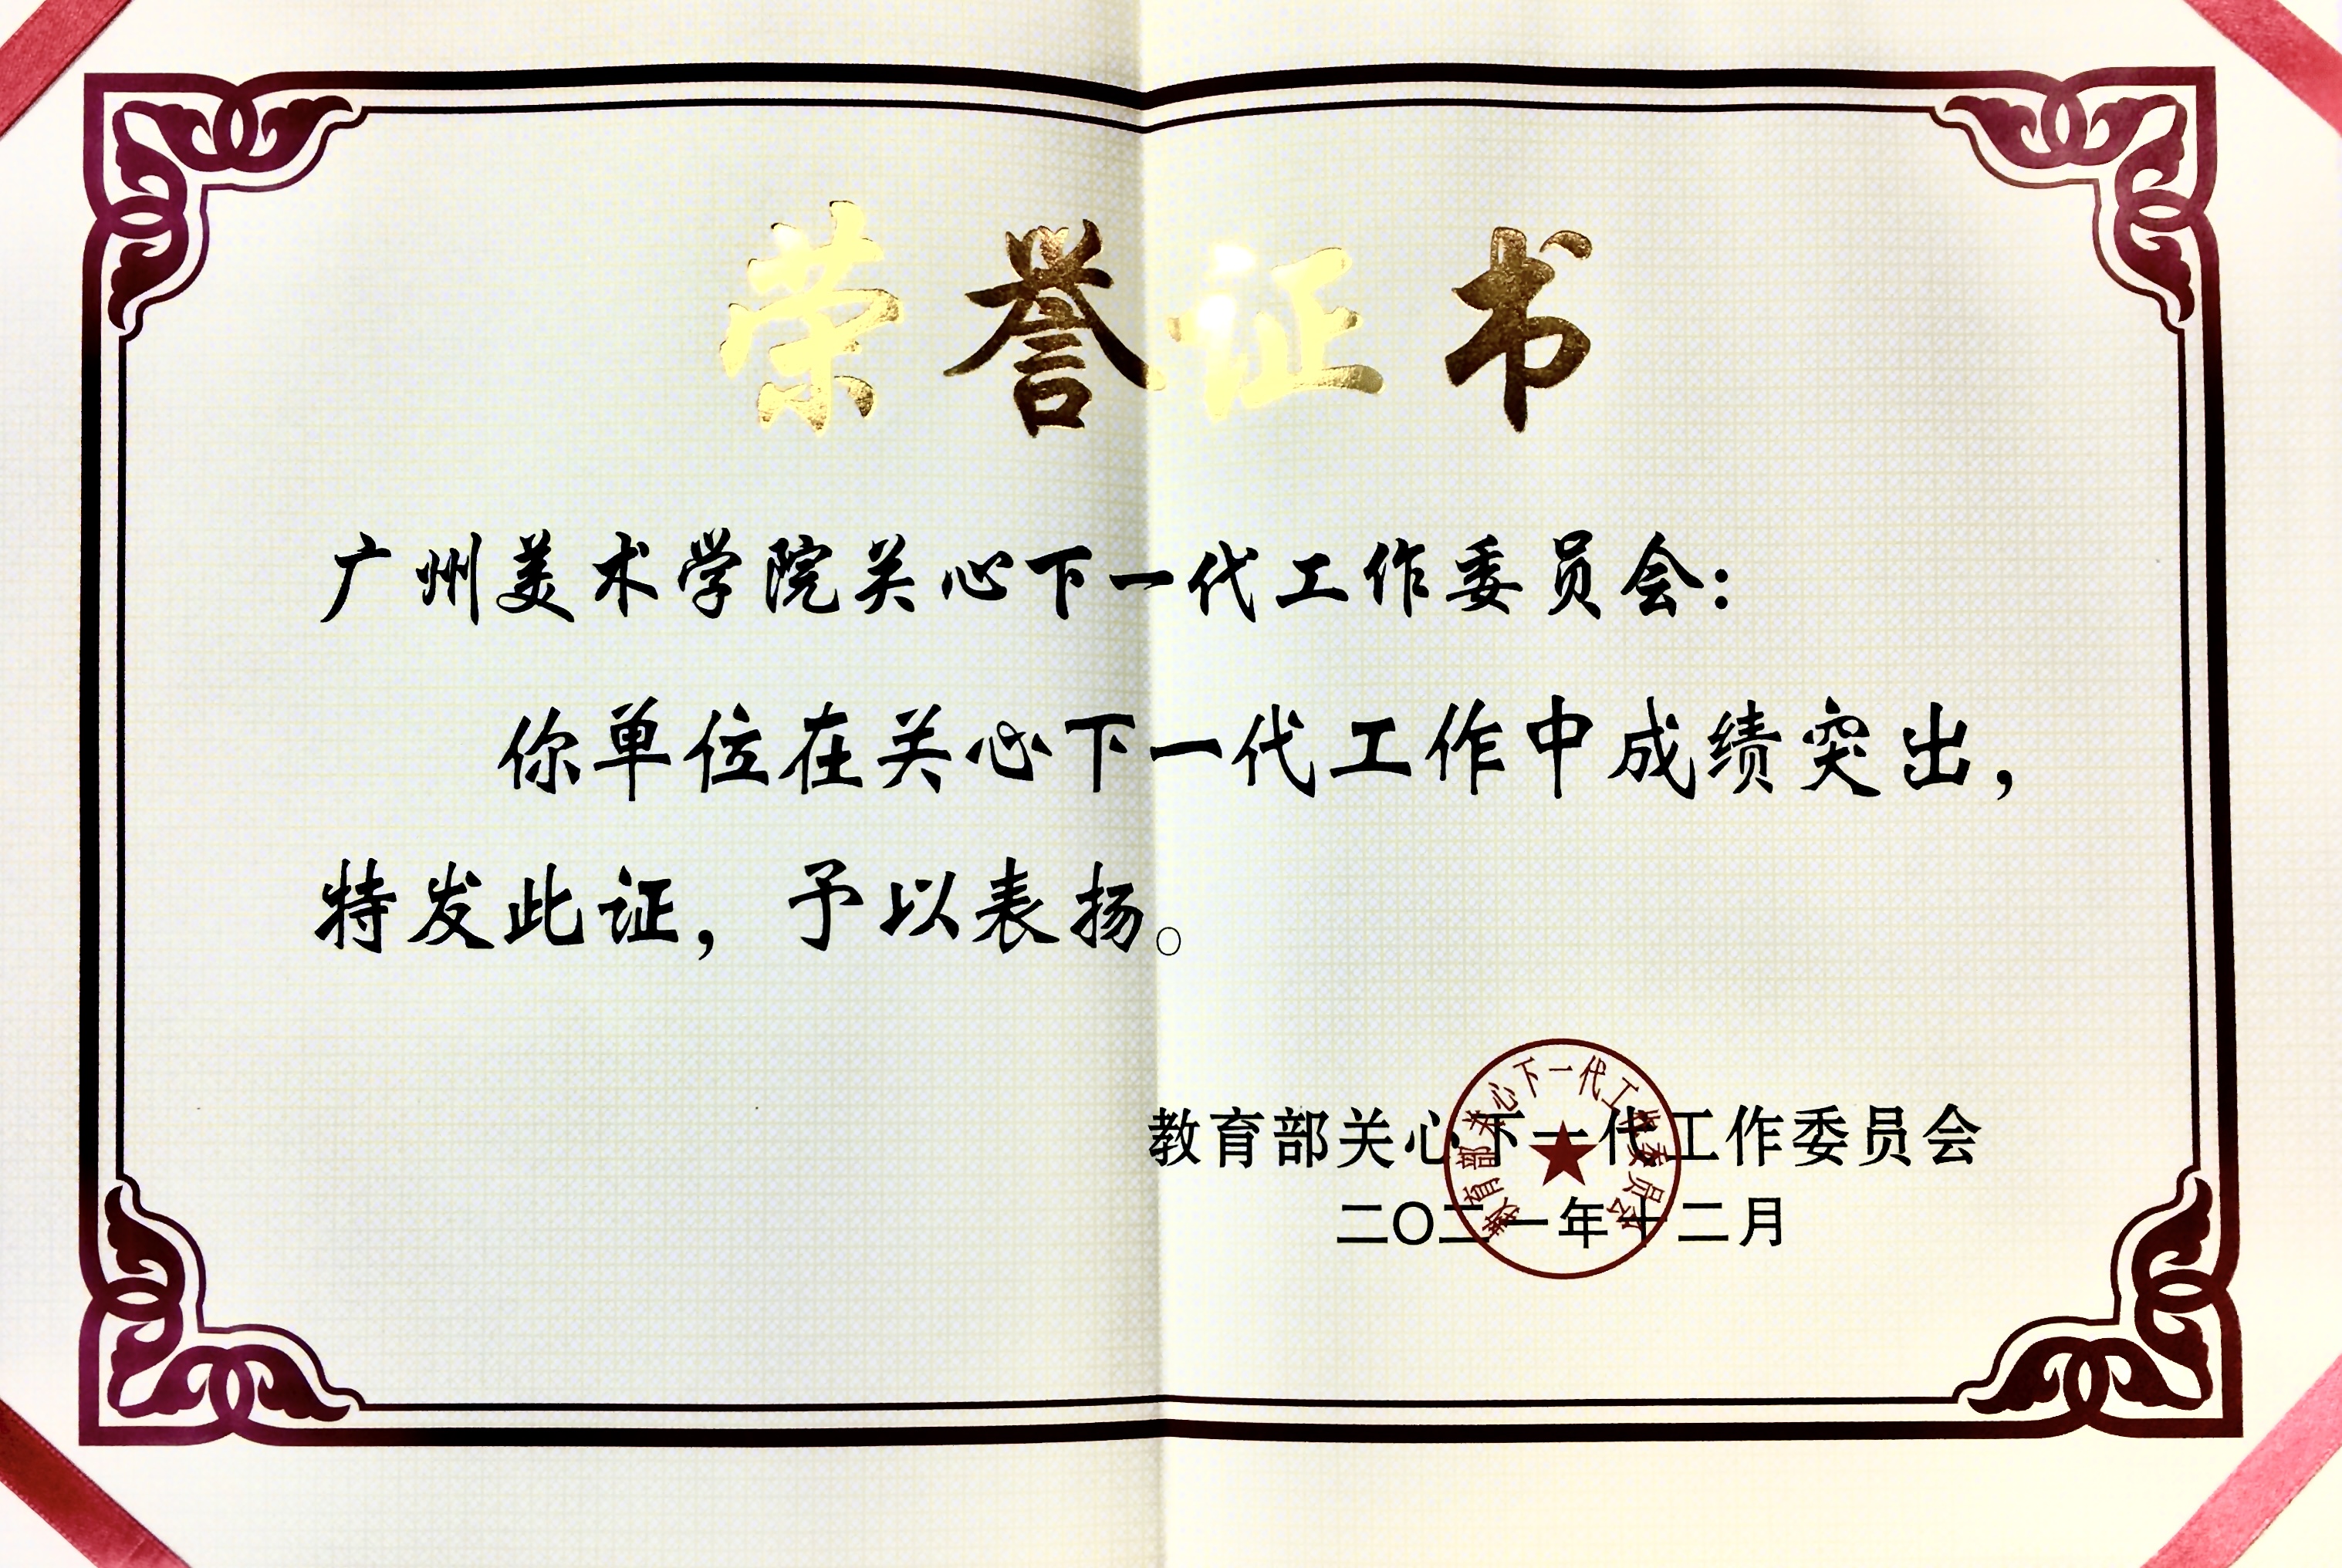 荣誉证书
广州美术学院关心下一代工作委员会：
你单位在关心下一代工作中成绩突出，
特发此证，予以表扬。
教育部关心下一代工作委员会
二〇二一年十二月
教育部关心下一代工作委员会